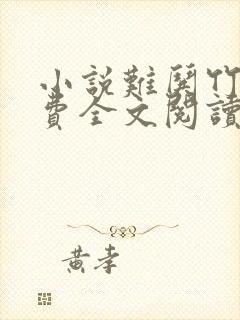 小説難哭竹
費全文閱讀
黃孝